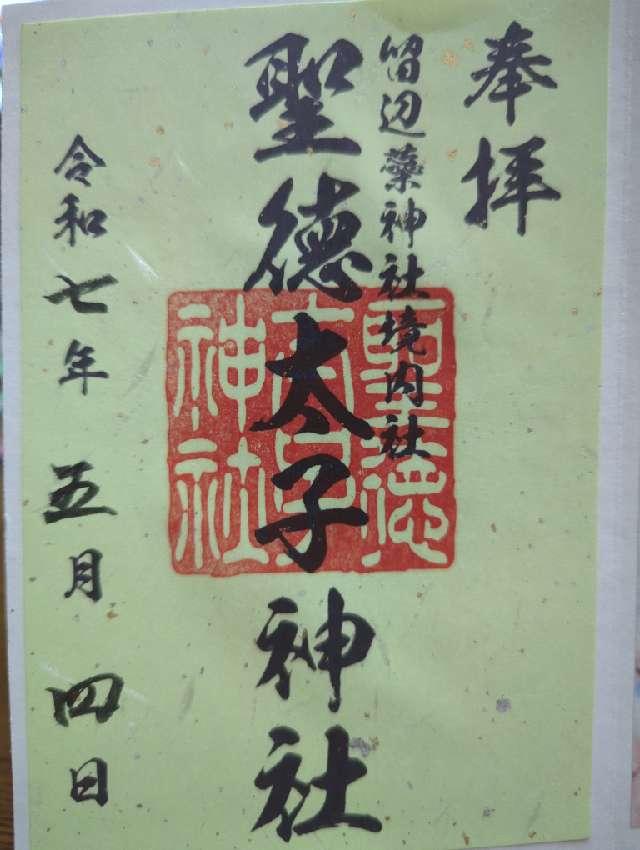 奉拝
留辺蘂神社境内社
聖徳太子神社
聖徳
太子
神社
令和七年五月四日